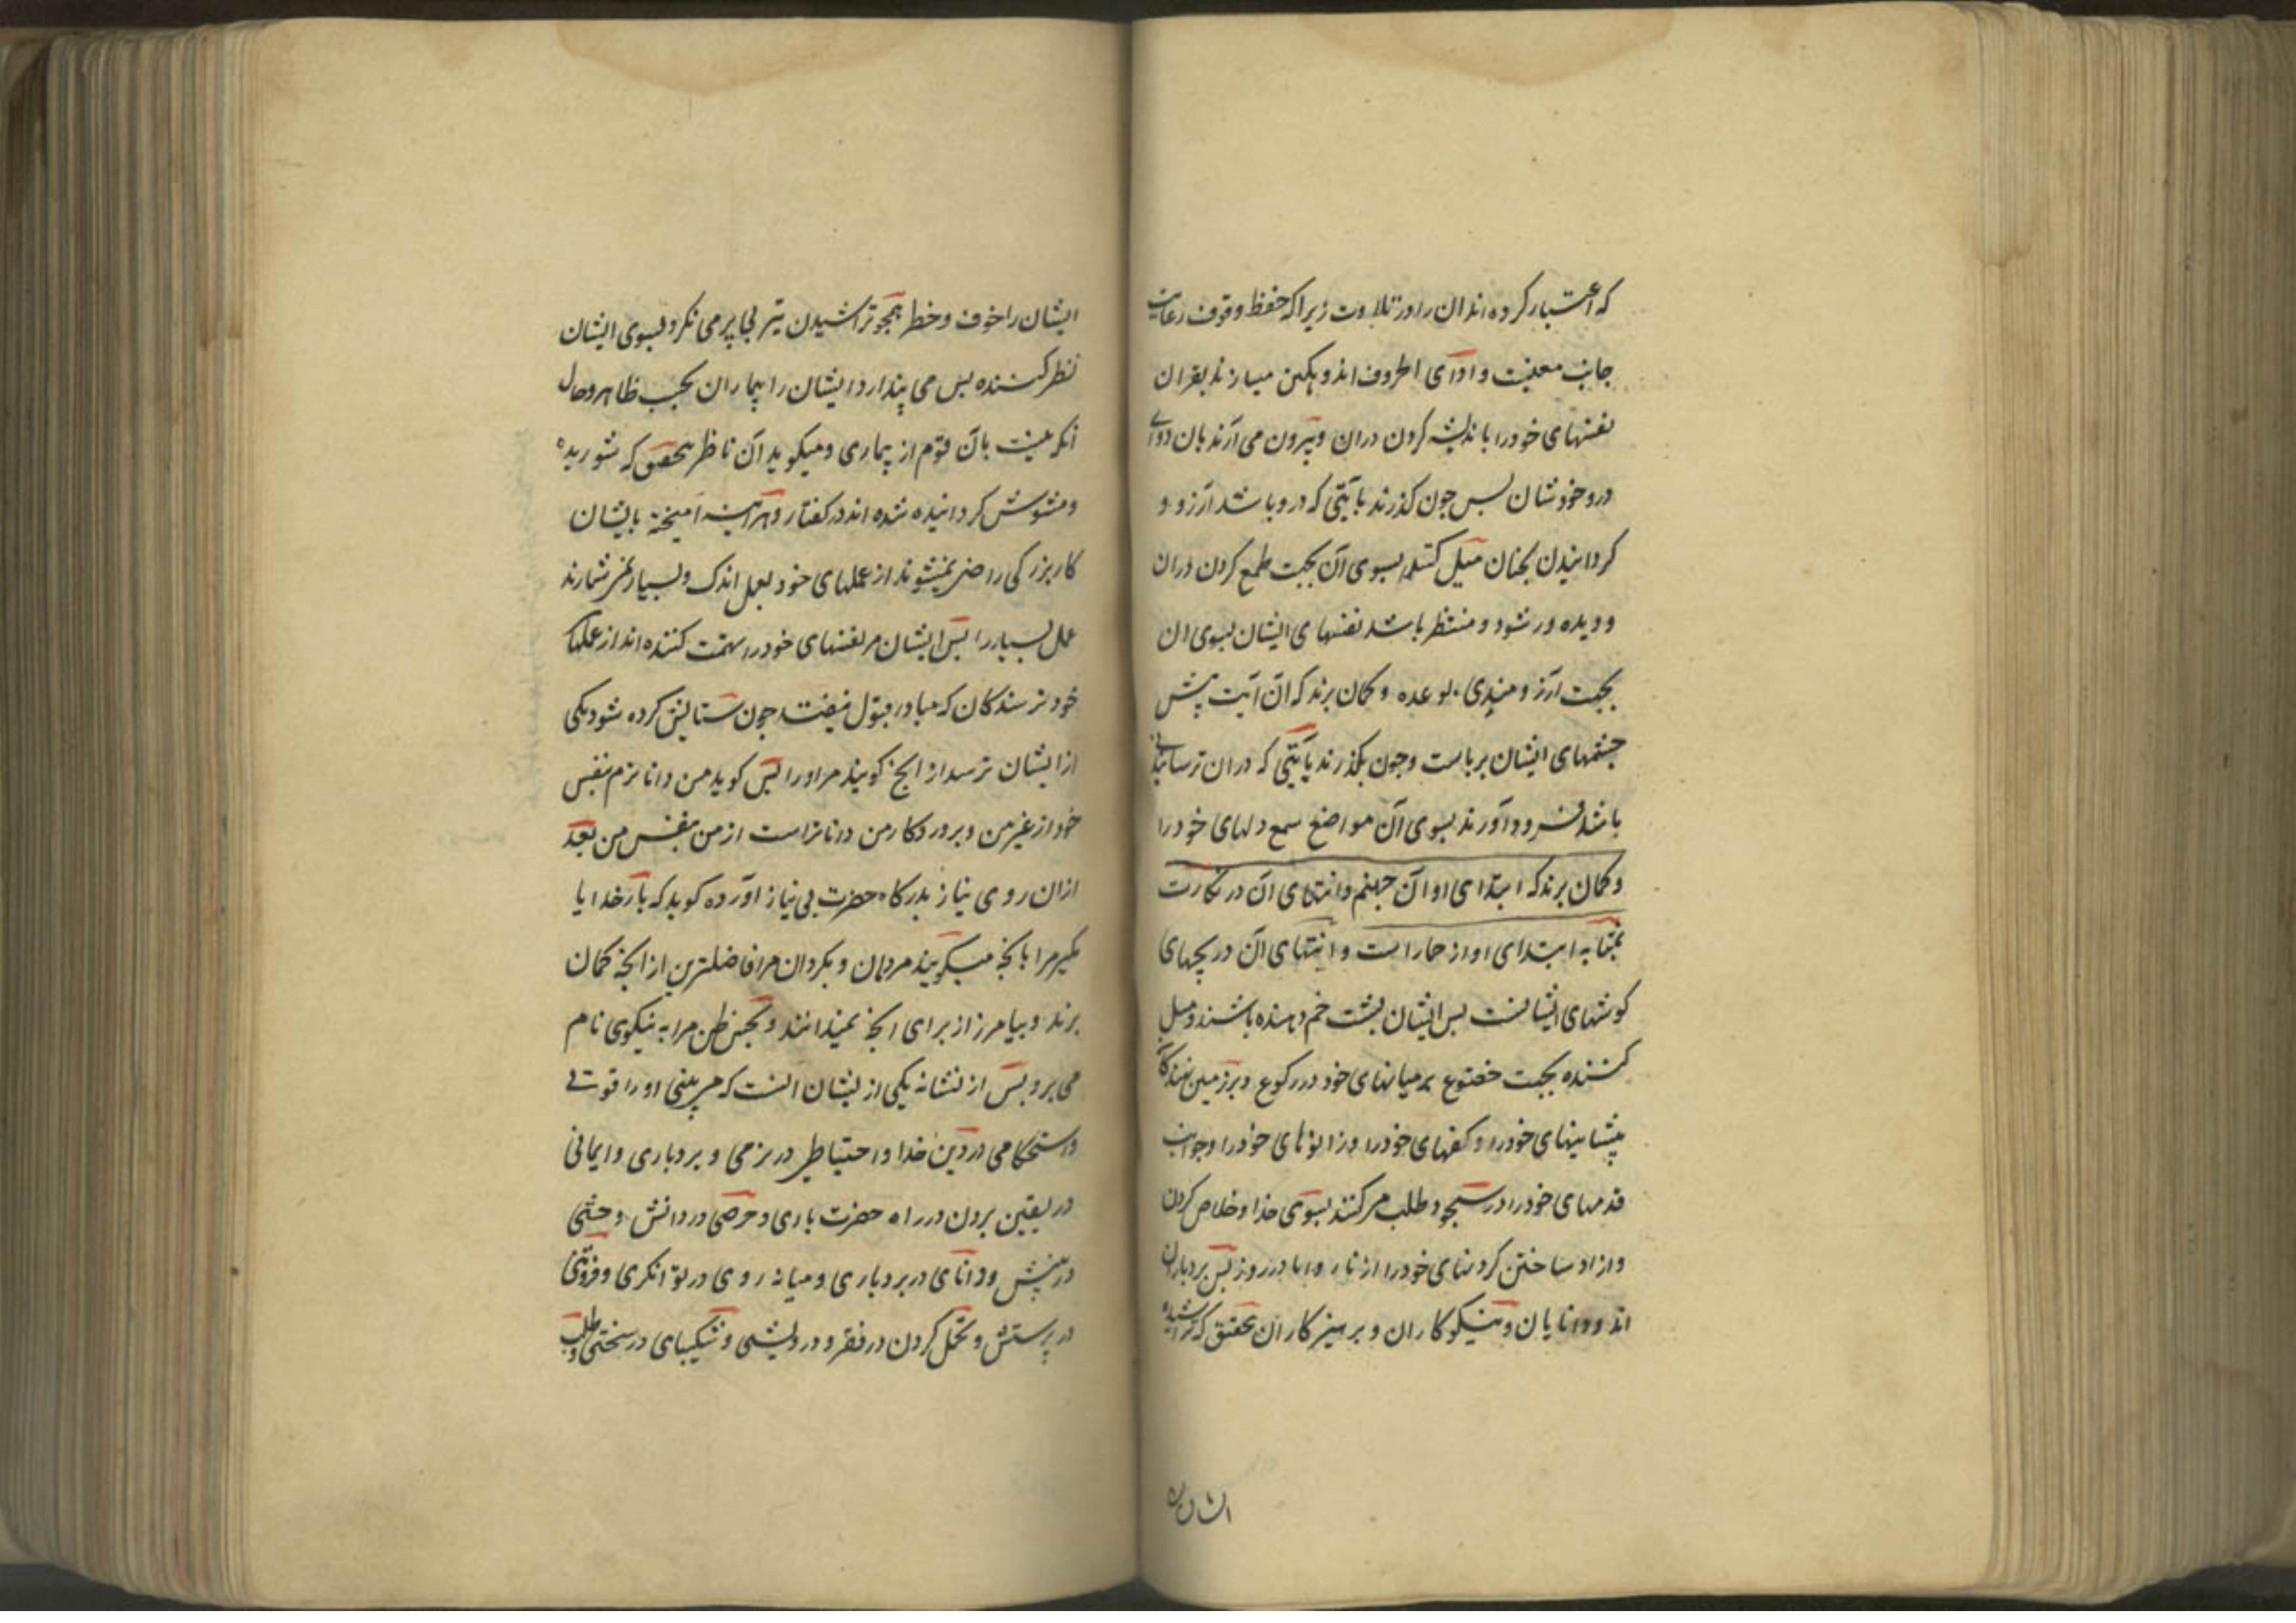 که اعتبار کرده اند ان را در تلاوت زیرا که حفظ وقوف رعایت
جانب معنیست و ادآی الحروف اند و غمگین میسازند بقران
نفسهای خود را باندیشه کردن دران و بیرون می آرند بان دوآی
درد خودشان پس چون کذرند بآیتی که درو باشد آرزو و
کردانیدن بجنان میل کنند بسوی آن بجهت طمع کردن دران
و دیده ور شود و منتظر باشد نفسهای ایشان بسوی ان
بجهت آرزومندی بوعده و کمان برند که آن آیت پیش
چشمهای ایشان برپاست و چون بکذرند بآیتی که دران ترسانیدنی
باشد فرود آورند بسوی آن مواضع سمع دلهای خود را
و کمان برند که ابتدای اواز جهنم و انتهای آن در
بمثابه ابتدای اواز حمار است و انتهای آن در بیخهای
کوشهای ایشانست پس ایشان پشت خم دهنده باشند و میل
کننده بجهت خضوع برمیانهای خود در رکوع و برزمین نهندکان
پیشانیهای خود را و کفهای خود را و زانوهای خود را و جوانب
قدمهای خود را در سجود و طلب مر کنند بسوی خدا و خلاص کردن
و ازاد ساختن کردنهای خود را از نار و اما در روز پس بردباران
اند و دانایان و نیکوکاران و پرهیزکاران بتحقیق که تراشیده
ایشان را
ایشان را خوف و خطر همچو تراشیدن تیر بی پر می نکرد بسوی ایشان
نظر کننده پس می پندارد ایشان را بیماران بحسب ظاهر و حال
آنکه نیست بآن قوم از بیماری و میکوید آن ناظر بتحقیق که شوریده
و مشوش کردانیده شده اند در کفتار و هر آینه آمیخته بایشان
کار بزرکی راضی نمیشوند از عملهای خود بعمل اندک و بسیار نمیشمارند
عمل بسیار را پس ایشان مر نفسهای خود را تهمت کننده اند از عملهای
خود ترسندکان که مبادا قبول نیفتد چون ستایش کرده شود یکی
از ایشان ترسد از آنچه کویند مر او را پس کوید من داناترم بنفس
خود از غیر من و پروردکار من داناتر است از من بنفس من بعد
ازان روی نیاز بدرکاه حضرت بی نیاز آورده کوید که بارخدایا
مکیر مرا بانچه میکویند مردمان و بکردان مرا فاضلترین از انچه کمان
برند و بیامرز از برای انچه نمیدانند و بحسن ظن مرا به نیکوی نام
می برد پس از نشانه یکی از یشان انست که می بینی او را قوت
و استحکامی در دین خدا و احتیاط در نرمی و بردباری و ایمانی
در یقین بردن در راه حضرت باری و حرصی در دانش و
در بینش و دانای در بردباری و میانه روی در توانکری و فروتنی
در پرستش و تحمل کردن در فقر و درویشی و شکیبای در سختی و طلب